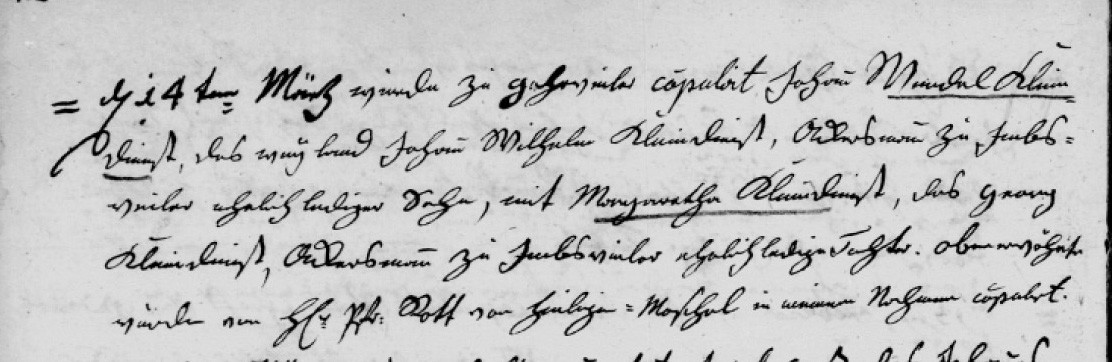 = d 14ten Märtz wurde zu gehrweiler copulirt Johañ Wendel Klein
dienst, des weyland Johañ Wilhelm Kleindienst, Ackersmañ zu Imbs=
weiler ehelich lediger Sohn, mit Margaretha Kleindienst, des Georg
Kleindienst, Ackersmañ zu Imbsweiler ehelich ledige Tochter. obenerwöhnte
wurden von H Pfr: Rott von Heiligen=Moschel in meinem Nahmen copulirt.